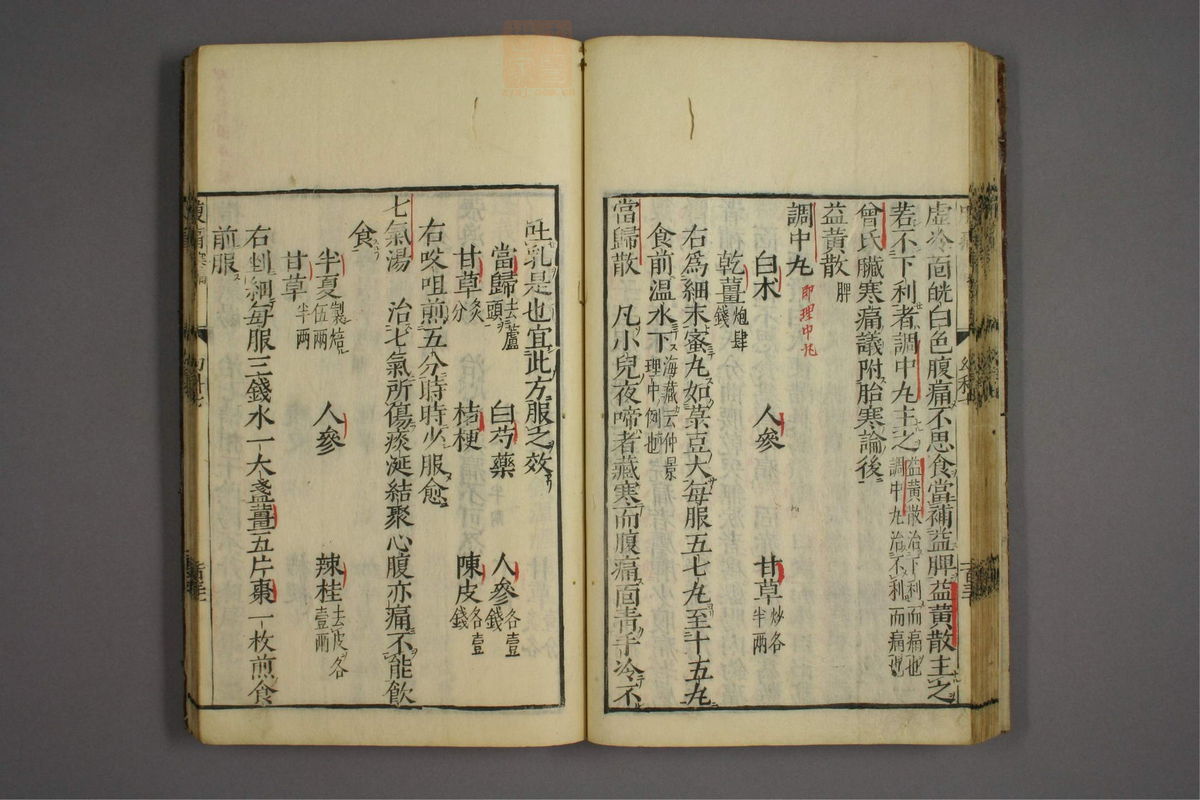 虚冷面㿠白色腹痛不思食當補益脾益黄散主之
若不下利者調中丸主之益黄散治下利而痛也調中丸治不利而痛也
曾氏臟寒痛議附胎寒論後
益黄散脾
調中丸即理中丸
白朮 人參 甘草炒各半兩
乾薑炮肆錢
右爲細末蜜丸如菉豆大每服五七丸至十五丸
食前温水下海藏云仲景理中例也
當歸散 凡小兒夜啼者藏寒而腹痛面青手冷不
吐乳是也宜此方服之效
當歸去蘆頭 白芍藥 人參各壹錢
甘草炙分 桔梗 陳皮各壹錢
右㕮咀煎五分時時少服愈
七氣湯 治七氣所傷痰涎結聚心腹亦痛不能飲
食
半夏製焙伍兩 人參 辣桂去皮各壹兩
甘草半兩
右剉細每服三錢水一大盞薑五片棗一枚煎食
前服